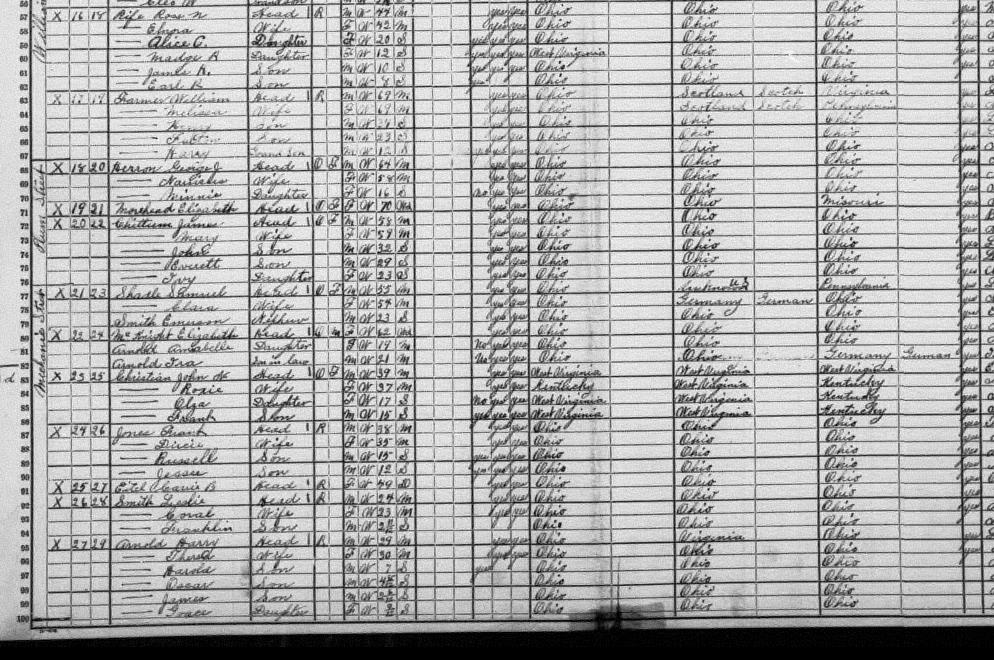 57 X 16 18 Rife Ross N Head R M W 44 M yes yes Ohio Ohio Ohio yes
58 — Elnora Wife F W 42 M yes yes Ohio Ohio Ohio yes
59 — Alice C. Daughter F W 20 S yes yes yes Ohio Ohio Ohio yes
60 — Madge R Daughter F W 12 S yes yes yes West Virginia Ohio Ohio yes
61 — James H. Son M W 10 S yes yes yes Ohio Ohio Ohio
62 — Earl R Son M W 8 S yes Ohio Ohio Ohio
63 X 17 19 Farmer William Head R M W 69 M yes yes Ohio Scotland Scotch Virginia yes
64 — Melissa Wife F W 69 M yes yes Ohio Scotland Scotch Pennsylvania yes
65 — Henry Son M W S yes yes Ohio Ohio Ohio yes
66 — Son M W 23 S yes yes Ohio Ohio Ohio yes
67 — Harry Grand Son M W 12 S yes yes Ohio Ohio Ohio yes
68 X 18 20 Herron George J Head O F M W 64 M yes yes Ohio Ohio Ohio yes
69 — Wife F W 58 M yes yes Ohio Ohio Ohio yes
70 — Minnie Daughter F W 16 S no yes yes Ohio Ohio Ohio yes
71 X 19 21 Morehead Elizabeth Head O F F W 70 Wd yes yes Ohio Ohio Missouri yes
72 X 20 22 Chittum James Head O F M W 58 M yes yes Ohio Ohio Ohio yes
73 — Mary Wife F W 59 M yes yes Ohio Ohio Ohio yes
74 — John Son M W 32 S yes yes Ohio Ohio Ohio yes
75 — Everett Son M W 29 S yes yes Ohio Ohio Ohio yes
76 — Ivy Daughter F W 23 S yes yes Ohio Ohio Ohio yes
77 X 21 23 Shade Samuel Head O F M W 55 M yes yes Ohio Unknown Pennsylvania yes
78 — Clara Wife F W 54 M yes yes Ohio Germany German Ohio yes
79 Smith Emerson Nephew M W 23 S yes yes Ohio Ohio Ohio yes
80 X 22 24 McKnight Elizabeth Head O M F W 62 Wd yes yes Ohio Ohio Ohio yes
81 Arnold Annabelle Daughter F W 19 M No yes yes Ohio Ohio Ohio yes
82 Arnold Ira Son in law M W 21 M No yes yes Ohio Ohio Germany German yes
83 X 23 25 Christian John W Head O F M W 39 M yes yes West Virginia West Virginia West Virginia yes
84 — Roxie Wife F W 37 M yes yes Kentucky West Virginia Kentucky yes
85 — Olga Daughter F W 17 S no yes yes West Virginia West Virginia Kentucky yes
86 — Frank Son M W 15 S yes yes yes West Virginia West Virginia Kentucky yes
87 X 24 26 Jones Grant Head R M W 38 M yes yes Ohio Ohio Ohio yes
88 — Dicie Wife F W 35 M yes yes Ohio Ohio Ohio yes
89 — Russell Son M W 15 S yes yes yes Ohio Ohio Ohio yes
90 — Jessie Son M W 12 S yes yes yes Ohio Ohio Ohio yes
91 X 25 27 Carrie B Head R F W 49 D yes yes Ohio Ohio Ohio yes
92 X 26 28 Smith Leslie Head R M W 24 M yes yes Ohio Ohio Ohio yes
93 — Coral Wife F W 23 M yes yes Ohio Ohio Ohio yes
94 — Franklin Son M W S Ohio Ohio Ohio
95 X 27 29 Arnold Harry Head R M W 29 M yes yes Ohio Virginia Ohio yes
96 — Wife F W 30 M yes yes Ohio Ohio Ohio yes
97 — Harold Son M W 7 S yes Ohio Ohio Ohio
98 — Oscar Son M W S Ohio Ohio Ohio
99 — James Son M W S Ohio Ohio Ohio
100 — Grace Daughter F W S Ohio Ohio Ohio
Plum Street
Mechanic Street